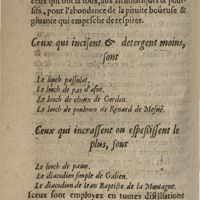 ceux qui ont la toux, aux asthmatiques & pous-
sifs, pour l'abondance de la pituite boüeuse &
gluante qui empesche de respirer.
Ceux qui incisent & detergent moins,
sont
Le looch passulat.
Le looch de pas d'asne.
Le looch de choux de Gordon.
Le looch de poulmon de Renard de Mesué.
Ceux qui incrassent ou espessissent le
plus, sont
Le looch de pauot.
Le diacodion simple de Galien.
Le diacodion de Iean Baptiste de la Montagne.
Iceux sont employez en toutes distillations